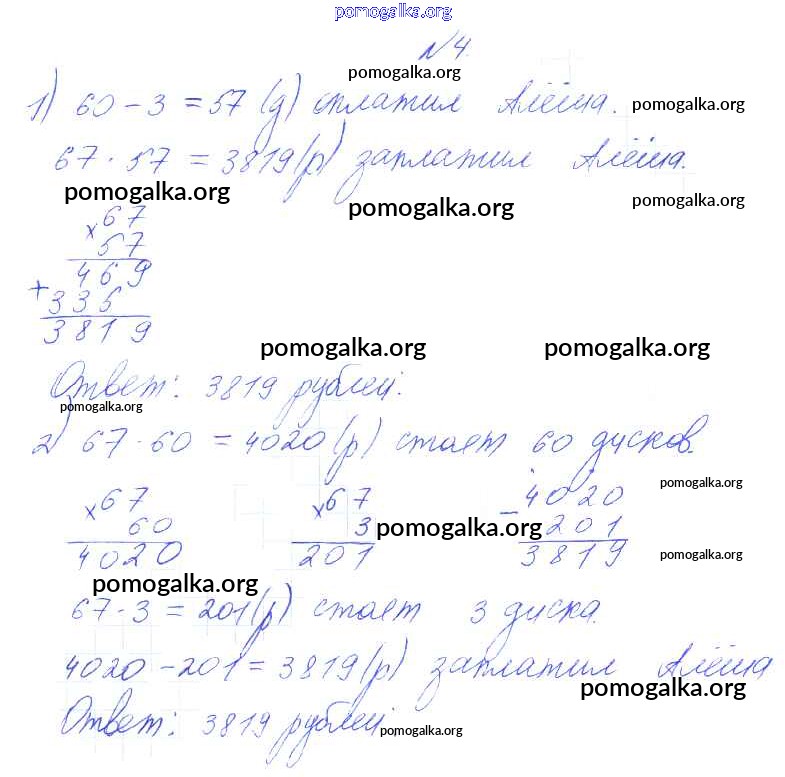 pomogalka.org
№4.
pomogalka.org
1) 60 - 3 = 57 (д) оплатил Алёша. pomogalka.org
67 · 57 = 3819 (р) заплатил Алёша.
pomogalka.org pomogalka.org pomogalka.org
× 67
57
469
+ 335
3819
pomogalka.org pomogalka.org
Ответ: 3819 рублей.
pomogalka.org
2) 67 · 60 = 4020 (р) стоет 60 дисков.
pomogalka.org
× 67 × 67 - 4020
60 3 201
pomogalka.org
4020 201 3819
pomogalka.org
pomogalka.org
67 · 3 = 201 (р) стоет 3 диска.
4020 - 201 = 3819 (р) заплатил Алёша
pomogalka.org
Ответ: 3819 рублей.
pomogalka.org